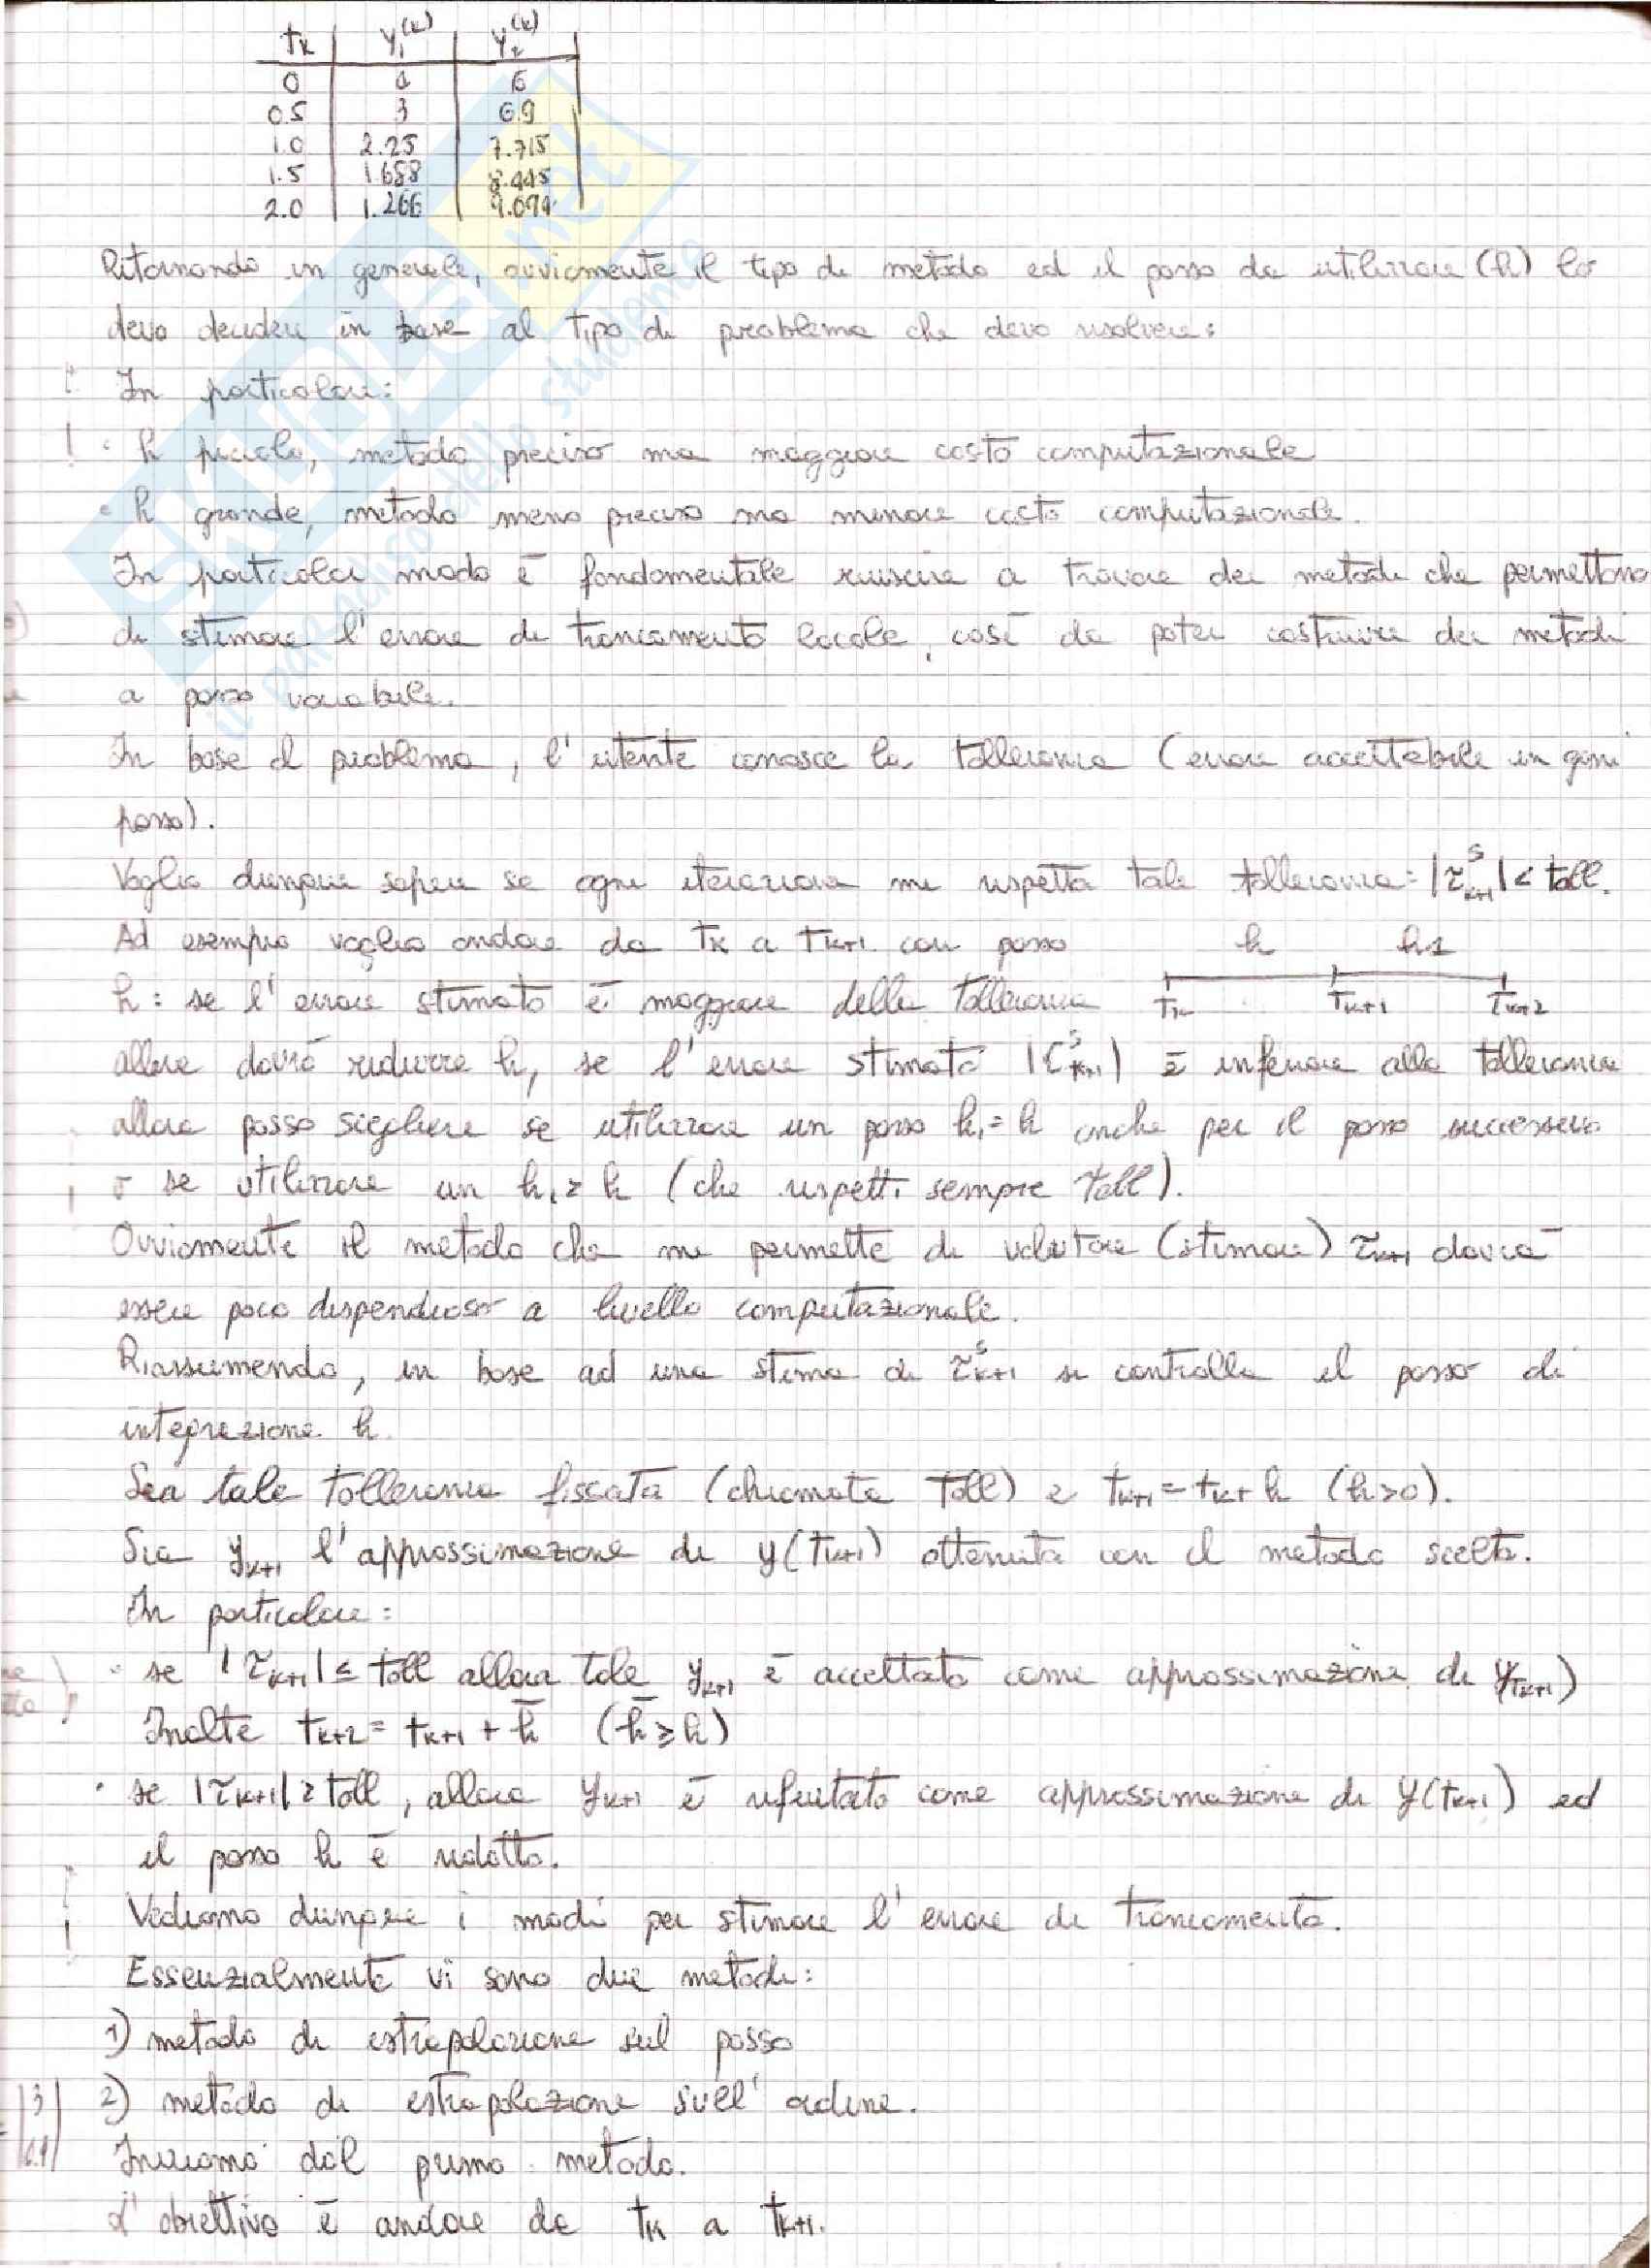 tk y1^(k) y2^(k)
0 4 6
0.5 3 6.9
1.0 2.25 7.715
1.5 1.688 8.445
2.0 1.266 9.094
Ritornando in generale, ovviamente il tipo di metodo ed il passo da utilizzare (h) lo
devo decidere in base al tipo di problema che devo risolvere:
In particolare:
! · h piccolo, metodo preciso ma maggiore costo computazionale
· h grande, metodo meno preciso ma minore costo computazionale.
In particolar modo è fondamentale riuscire a trovare dei metodi che permettono
di stimare l'errore di troncamento locale, così da poter costruire dei metodi
a passo variabile.
In base al problema, l'utente conosce la tolleranza (errore accettabile in ogni
passo).
Voglio dunque sapere se ogni iterazione mi rispetta tale tolleranza: |τ^s_k+1| < toll.
Ad esempio voglio andare da tk a tk+1 con passo
h h1
h: se l'errore stimato è maggiore della tolleranza
tk tk+1 tk+2
allora dovrò ridurre h, se l'errore stimato |τ^s_k+1| è inferiore alla tolleranza
allora posso scegliere se utilizzare un passo h1=h anche per il passo successivo
o se utilizzare un h1≥h (che rispetti sempre toll).
Ovviamente il metodo che mi permette di valutare (stimare) τk+1 dovrà
essere poco dispendioso a livello computazionale.
Riassumendo, in base ad una stima di τ^s_k+1 si controlla il passo di
integrazione h.
Sia tale tolleranza fissata (chiamata toll) e tk+1 = tk + h (h>0).
Sia yk+1 l'approssimazione di y(tk+1) ottenuta con il metodo scelto.
In particolare:
· se |τk+1| ≤ toll allora tale yk+1 è accettato come approssimazione di y(tk+1)
Inoltre tk+2 = tk+1 + h̄ (h̄ ≥ h)
· se |τk+1| ≥ toll, allora yk+1 è rifiutato come approssimazione di y(tk+1) ed
il passo h è ridotto.
Vediamo dunque i modi per stimare l'errore di troncamento.
Essenzialmente vi sono due metodi:
1) metodo di estrapolazione sul passo
2) metodo di estrapolazione sull'ordine.
Iniziamo dal primo metodo.
L'obiettivo è andare da tk a tk+1.